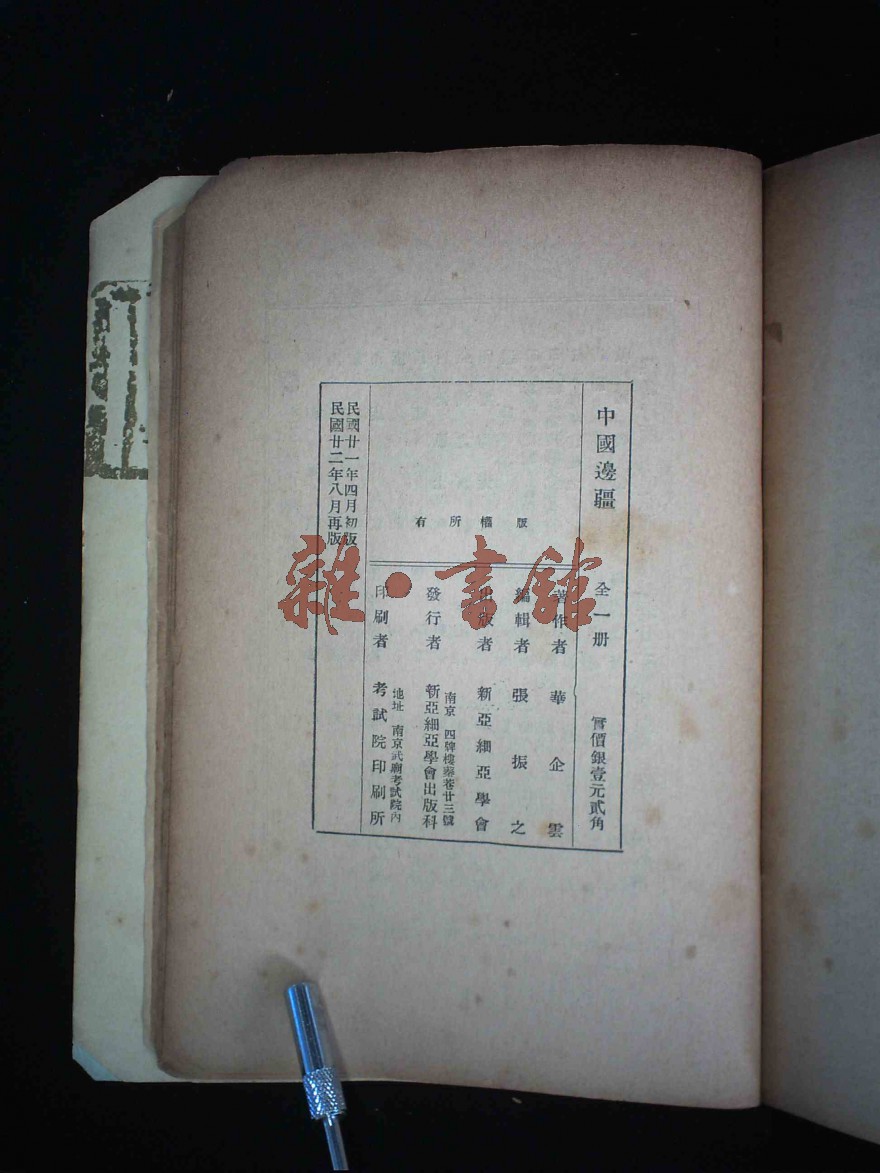 中國邊疆 全一册 實價銀壹元貳角
版權所有
著作者 華企雲
編輯者 張振之
出版者 新亞細亞學會
南京 四牌樓蓁巷廿三號
發行者 新亞細亞學會出版科
地址 南京武廟考試院內
印刷者 考試院印刷所
民國廿一年四月初版
民國廿二年八月再版
雜·書館